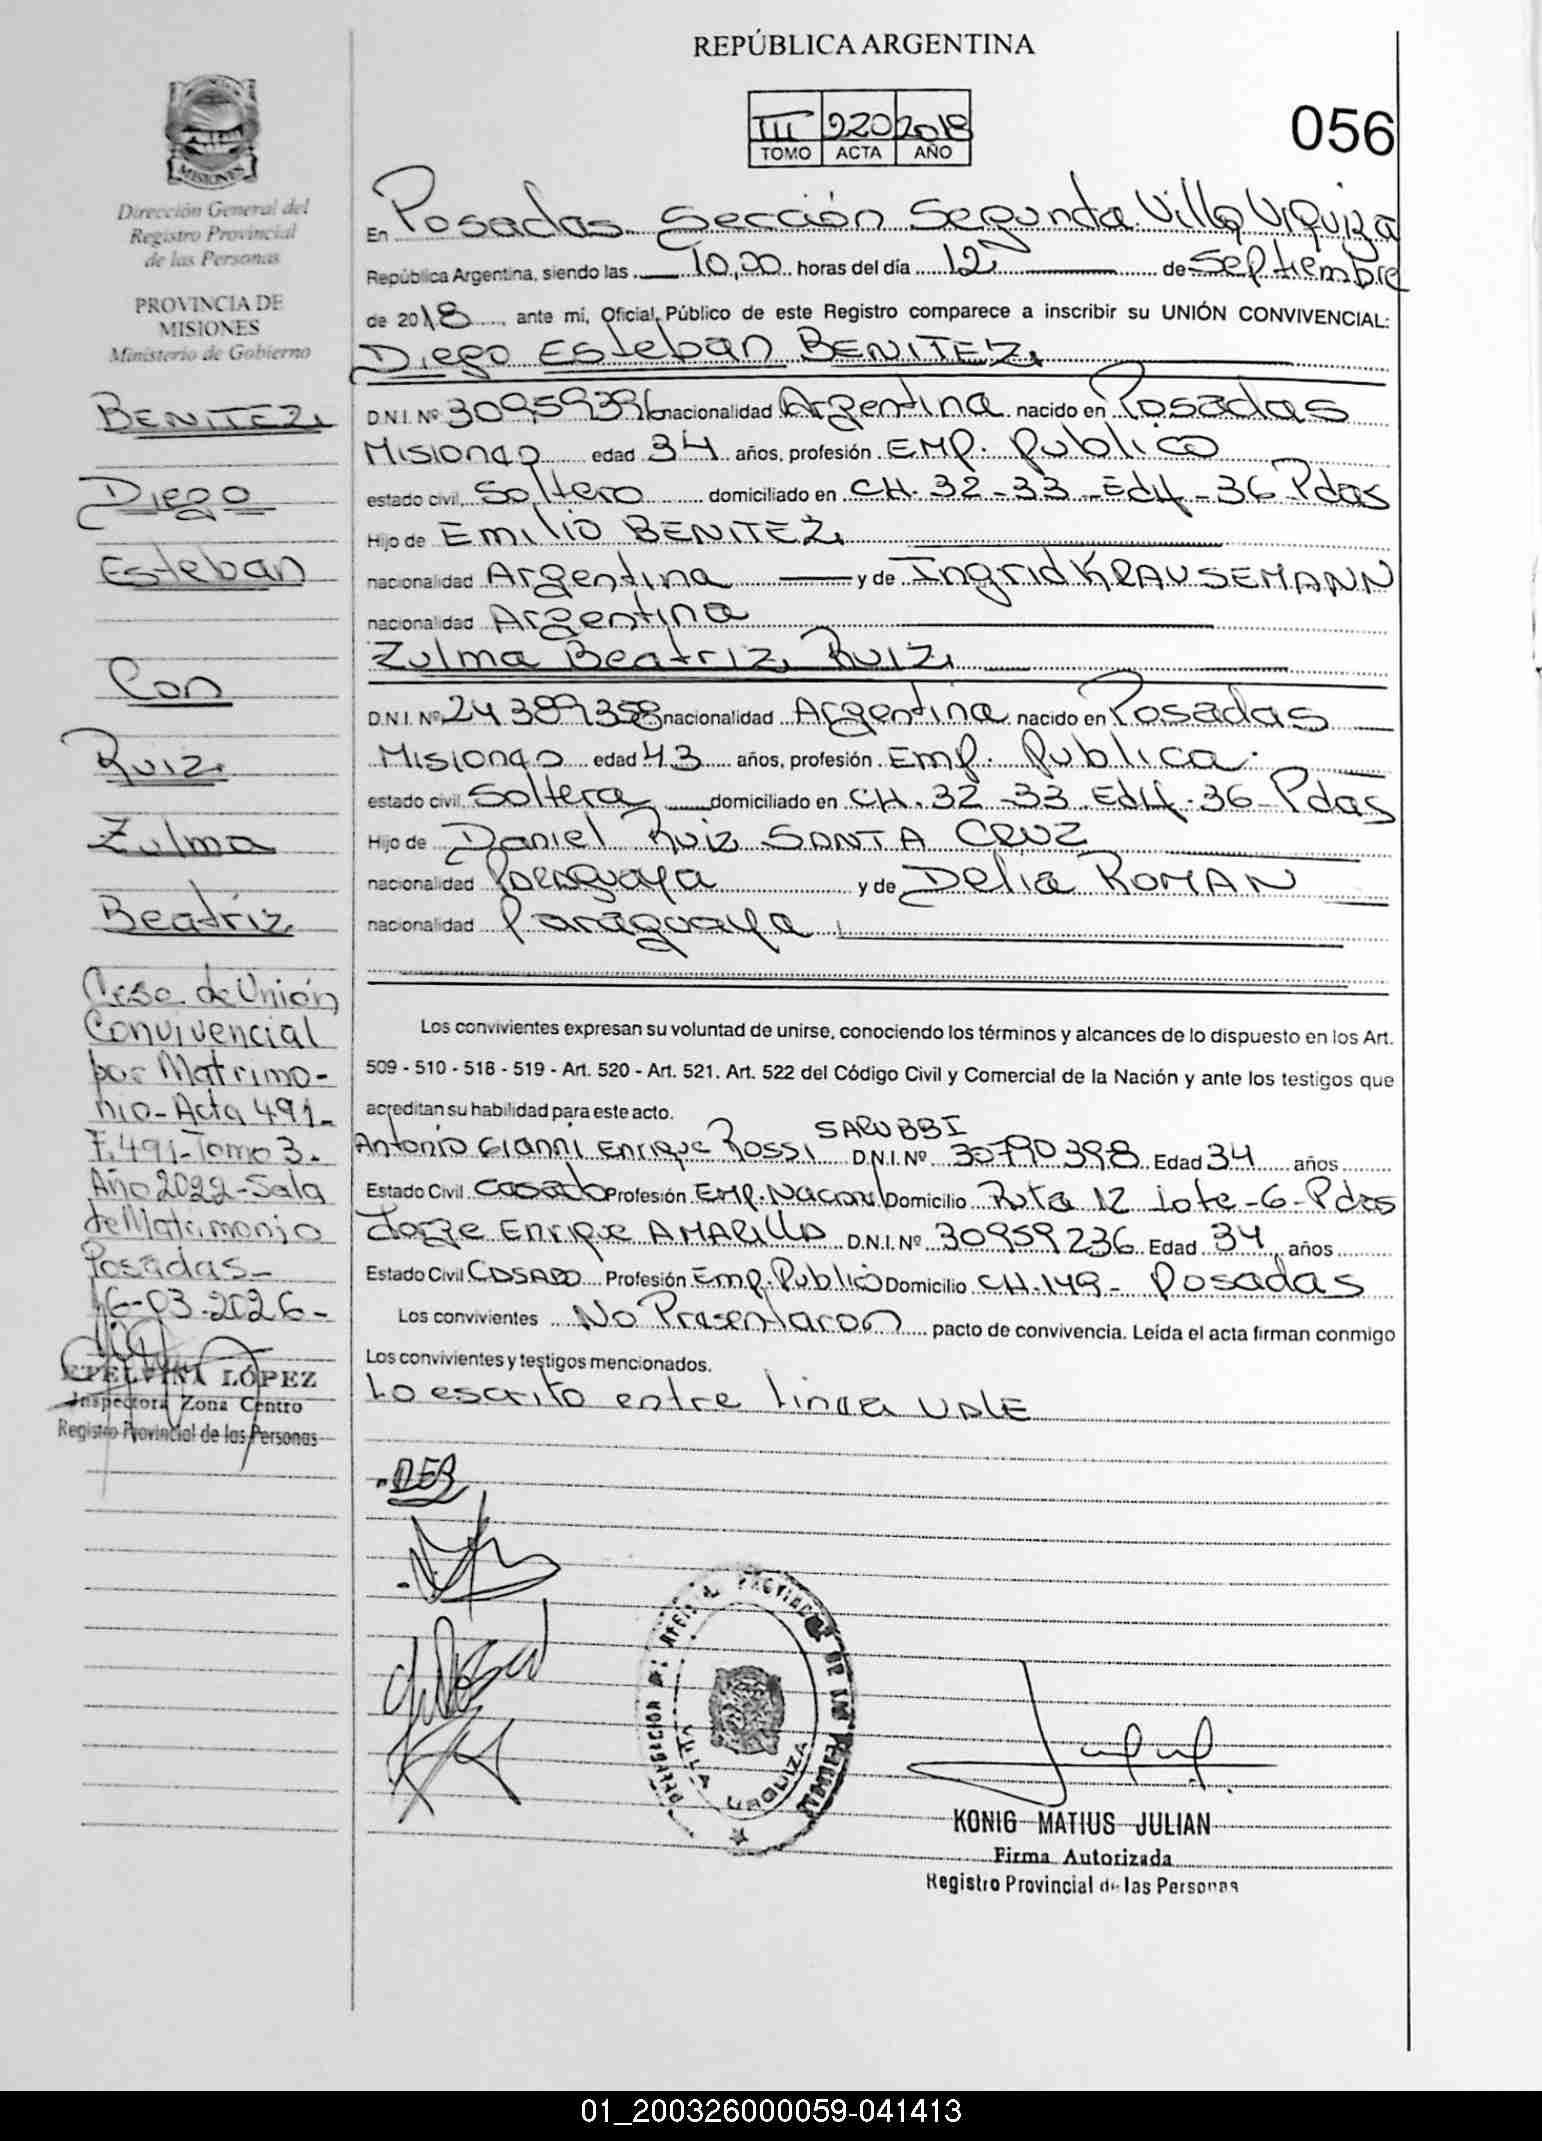 REPÚBLICA ARGENTINA
III 920 2018
TOMO ACTA AÑO
056
MISIONES
Dirección General del
Registro Provincial
de las Personas
PROVINCIA DE
MISIONES
Ministerio de Gobierno
BENITEZ
Diego
Esteban
Con
Ruiz
Zulma
Beatriz
Cese de Unión
Convivencial
por Matrimo-
nio-Acta 491-
F.491-Tomo 3.
Año 2022-Sala
de Matrimonio
Posadas-
16-03-2026-
LÓPEZ
Inspectora Zona Centro
Registro Provincial de las Personas
En Posadas Sección Segunda Villa Urquiza
República Argentina, siendo las 10,00 horas del día 12 de Septiembre
de 2018, ante mí, Oficial Público de este Registro comparece a inscribir su UNIÓN CONVIVENCIAL:
Diego Esteban BENITEZ
D.N.I. Nº 30959396 nacionalidad Argentina nacido en Posadas
Misiones edad 34 años, profesión EMP. publico
estado civil Soltero domiciliado en CH. 32-33-Edif-36 Pdas
Hijo de Emilio BENITEZ
nacionalidad Argentina y de Ingrid KRAUSEMANN
nacionalidad Argentina
Zulma Beatriz Ruiz
D.N.I. Nº 24389358 nacionalidad Argentina nacido en Posadas
Misiones edad 43 años, profesión Emp. Publica.
estado civil Soltera domiciliado en CH. 32-33 Edif-36-Pdas
Hijo de Daniel Ruiz SANTA CRUZ
nacionalidad Paraguaya y de Delia ROMAN
nacionalidad Paraguaya
Los convivientes expresan su voluntad de unirse, conociendo los términos y alcances de lo dispuesto en los Art.
509 - 510 - 518 - 519 - Art. 520 - Art. 521. Art. 522 del Código Civil y Comercial de la Nación y ante los testigos que
acreditan su habilidad para este acto.
SARUBBI
Antonio Gianni Enrique Rossi D.N.I. Nº 30790398 Edad 34 años
Estado Civil Casado Profesión Emp. Nacional Domicilio Ruta 12 lote-6-Pdas
Jorge Enrique AMARILLA D.N.I. Nº 30959236 Edad 34 años
Estado Civil CASADO Profesión Emp. Publico Domicilio CH.149- Posadas
Los convivientes No Presentaron pacto de convivencia. Leída el acta firman conmigo
Los convivientes y testigos mencionados.
Lo escrito entre linea VALE
DEB
VILLA URQUIZA
KONIG MATIUS JULIAN
Firma Autorizada
Registro Provincial de las Personas
01_200326000059-041413